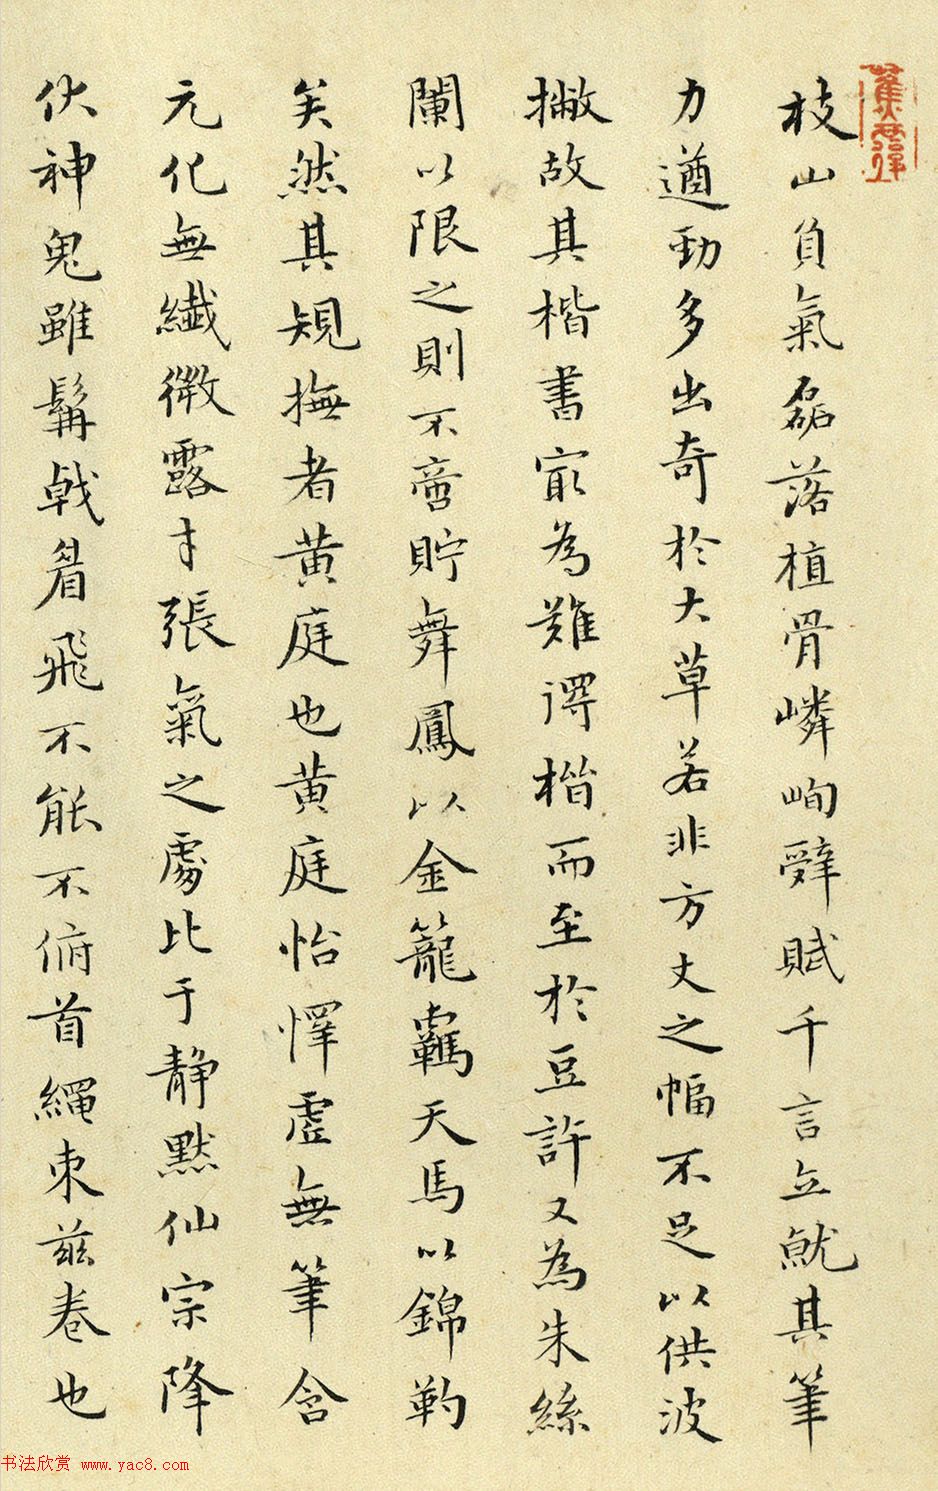 枝山負氣磊落植骨嶙峋辭賦千言立就其筆
力遒勁多出奇於大草若非方丈之幅不足以供波
撇故其楷書最為難得楷而至於豆許又為朱絲
闌以限之則不啻貯舞鳳以金籠羈天馬以錦靮
矣然其規撫者黃庭也黃庭怡懌虛無筆含
元化無纖微露才張氣之處比于靜默仙宗降
伏神鬼雖髯戟眉飛不能不俯首繩束茲卷也
书法欣赏 www.yac8.com